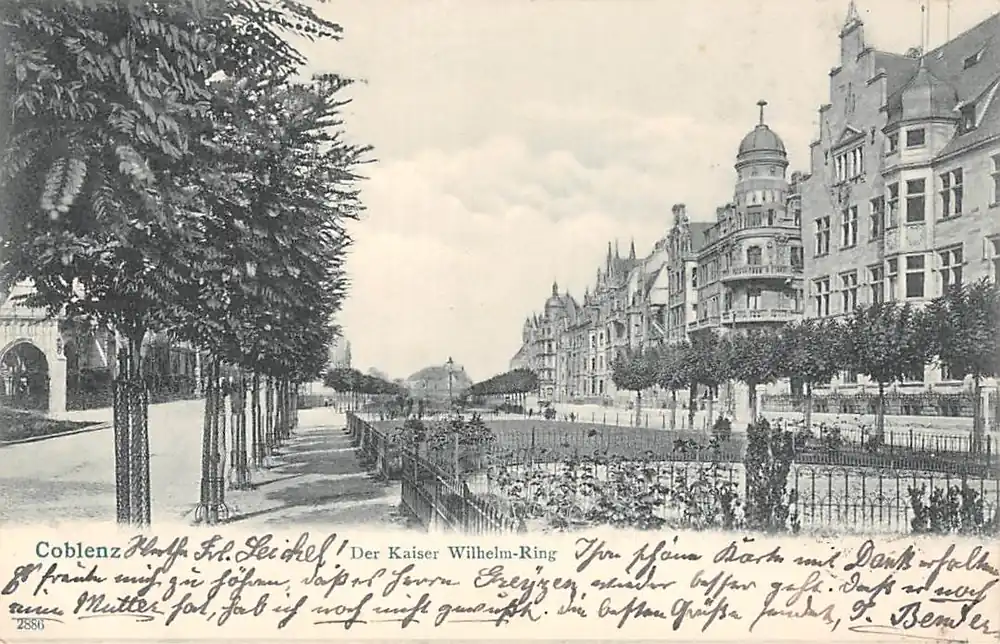 Coblenz
Der Kaiser Wilhelm-Ring
Werthe Frl. Seickel!
Ihre schöne Karte mit Dank erhalten
Es freute mich zu hören, daß es Herrn Greyzen wieder besser geht. Daß er noch
eine Mutter hat, hab ich noch nicht gewußt. Die besten Grüße sendet, F. Bender
2886